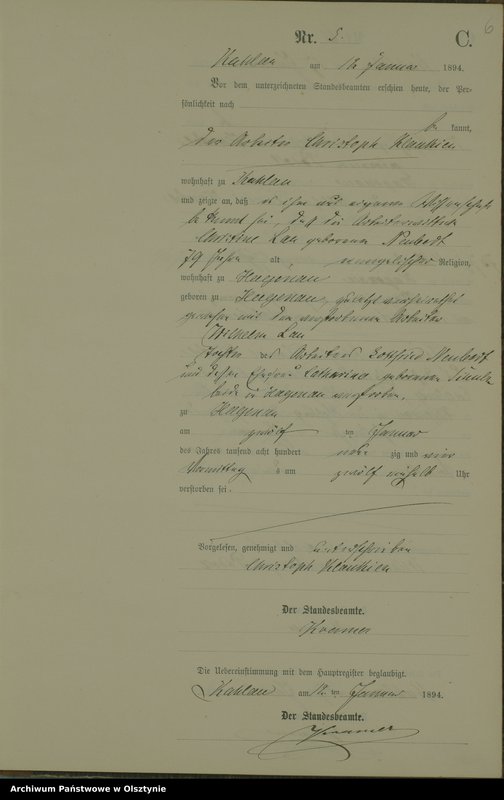 6
Nr. 5. C.
Kahlau am 12 Januar 1894.
Vor dem unterzeichneten Standesbeamten erschien heute, der Per-
sönlichkeit nach
be kannt,
der Arbeiter Christoph Klaukien
wohnhaft zu Kahlau
und zeigte an, daß es ihm aus eigener Wissenschaft
bekannt sei, daß die
Christine Lau geborene Neubert
79 Jahre alt, evangelischer Religion,
wohnhaft zu Hagenau
geboren zu Hagenau, zuletzt verheirathet
gewesen mit dem verstorbenen Arbeiter
Wilhelm Lau
Tochter des Arbeiters Gottfried Neubert
und dessen Ehefrau Catharina geborenen Schulz
beide in Hagenau verstorben,
zu Hagenau
am zwölf ten Januar
des Jahres tausend acht hundert neun zig und vier
Vormittag s um zwölf einhalb Uhr
verstorben sei.
Vorgelesen, genehmigt und unterschrieben
Christoph Klaukien
Der Standesbeamte.
Kramer
Die Uebereinstimmung mit dem Hauptregister beglaubigt.
Kahlau am 12 ten Januar 1894.
Der Standesbeamte.
Kramer
Archiwum Państwowe w Olsztynie